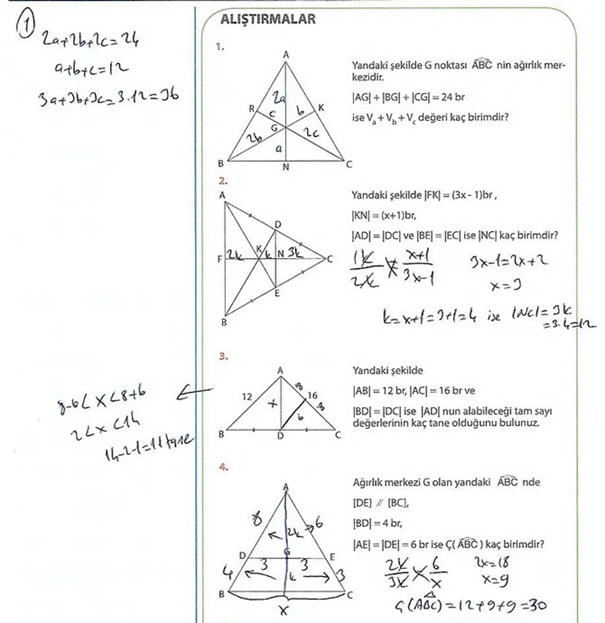 ALIŞTIRMALAR
1
2a+2b+2c=24
a+b+c=12
3a+3b+3c=3.12=36
1.
A
R
K
2a
c
b
G
2b
2c
a
B
N
C
Yandaki şekilde G noktası ABC nin ağırlık mer-
kezidir.
|AG| + |BG| + |CG| = 24 br
ise Va + Vb + Vc değeri kaç birimdir?
2.
A
D
F
2k
K
k
N
3k
C
E
B
Yandaki şekilde |FK| = (3x - 1)br ,
|KN| = (x+1)br,
|AD| = |DC| ve |BE| = |EC| ise |NC| kaç birimdir?
1k/2k x+1/3x-1
3x-1=2x+2
x=3
k=x+1=3+1=4 ise |NC|=3k
=3.4=12
3.
A
12
x
8
16
8
6
B
D
C
Yandaki şekilde
|AB| = 12 br, |AC| = 16 br ve
|BD| = |DC| ise |AD| nun alabileceği tam sayı
değerlerinin kaç tane olduğunu bulunuz.
8-6<x<8+6
2<x<14
14-2-1=11 tane
4.
A
8
2k
6
D
3
G
3
E
4
k
3
B
C
x
Ağırlık merkezi G olan yandaki ABC nde
[DE] // [BC],
|BD| = 4 br,
|AE| = |DE| = 6 br ise Ç( ABC ) kaç birimdir?
2k/3k 6/x
2x=18
x=9
Ç(ABC)=12+9+9=30